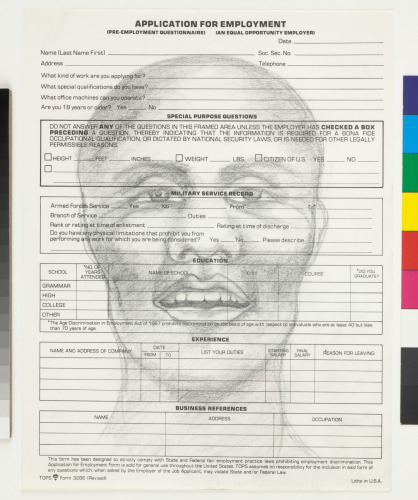 APPLICATION FOR EMPLOYMENT
(PRE-EMPLOYMENT QUESTIONNAIRE) (AN EQUAL OPPORTUNITY EMPLOYER)
Date
Name (Last Name First) Soc. Sec. No.
Address Telephone
What kind of work are you applying for?
What special qualifications do you have?
What office machines can you operate?
Are you 18 years or older? Yes No
SPECIAL PURPOSE QUESTIONS
DO NOT ANSWER ANY OF THE QUESTIONS IN THIS FRAMED AREA UNLESS THE EMPLOYER HAS CHECKED A BOX
PRECEDING A QUESTION, THEREBY INDICATING THAT THE INFORMATION IS REQUIRED FOR A BONA FIDE
OCCUPATIONAL QUALIFICATION, OR DICTATED BY NATIONAL SECURITY LAWS, OR IS NEEDED FOR OTHER LEGALLY
PERMISSIBLE REASONS.
HEIGHT FEET INCHES WEIGHT LBS. CITIZEN OF U.S. YES NO
MILITARY SERVICE RECORD
Armed Forces Service Yes No From To
Branch of Service Duties
Rank or rating at time of enlistment Rating at time of discharge
Do you have any physical limitations that prohibit you from
performing any work for which you are being considered? Yes No Please describe
EDUCATION
SCHOOL *NO. OF YEARS ATTENDED NAME OF SCHOOL CITY COURSE *DID YOU GRADUATE?
GRAMMAR
HIGH
COLLEGE
OTHER
*The Age Discrimination in Employment Act of 1967 prohibits discrimination on the basis of age with respect to individuals who are at least 40 but less
than 70 years of age.
EXPERIENCE
NAME AND ADDRESS OF COMPANY DATE FROM TO LIST YOUR DUTIES STARTING SALARY FINAL SALARY REASON FOR LEAVING
BUSINESS REFERENCES
NAME ADDRESS OCCUPATION
This form has been designed to strictly comply with State and Federal fair employment practice laws prohibiting employment discrimination. This
Application for Employment Form is sold for general use throughout the United States. TOPS assumes no responsibility for the inclusion in said form of
any questions which, when asked by the Employer of the Job Applicant, may violate State and/or Federal Law.
TOPS Form 3286 (Revised) Litho in U.S.A.